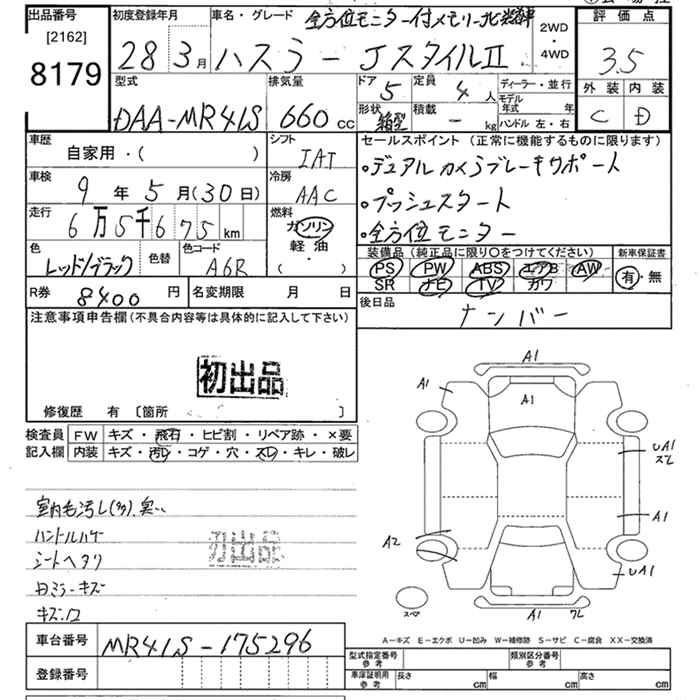 出品番号
[2162]
8179
初度登録年月
28 3月
車名・グレード
全方位モニター付メモリーナビ装着車
ハスラー JスタイルⅡ
2WD
・
4WD
評価点
3.5
外装 内装
C D
型式
DAA-MR41S
排気量
660 cc
ドア
5
定員
4人
形状
箱型
積載
- kg
ディーラー・並行
モデル年式 年
ハンドル 左・右
車歴
自家用・( )
シフト
IAT
車検
9年5月(30日)
冷房
AAC
走行
6万5千675km
燃料
ガソリン
軽油
( )
色
レッド/ブラック
色替
色コード
A6R
セールスポイント (正常に機能するものに限ります)
・デュアルカメラブレーキサポート
・プッシュスタート
・全方位モニター
装備品 (純正品に限り○をつけてください)
PS PW ABS エアB AW
SR ナビ TV カワ
新車保証書
有・無
R券
8400円
名変期限 月 日
後日品
ナンバー
注意事項申告欄(不具合内容等は具体的に記入して下さい)
初出品
修復歴 有 〔箇所 〕
検査員
記入欄
FW キズ・飛石・ヒビ割・リペア跡・×要
内装 キズ・汚レ・コゲ・穴・スレ・キレ・破レ
ハンドルハゲ
シートヘタリ
初出品
A1
A1
A1
UA1
スレ
A1
A2
UA1
A1
スペア
A-キズ E-エクボ U-凹み W-補修跡 S-サビ C-腐食 XX-交換済
車台番号
MR41S-175296
登録番号
型式指定番号
参考
類別区分番号
参考
車庫証明用
参考
長さ cm
幅 cm
高さ cm